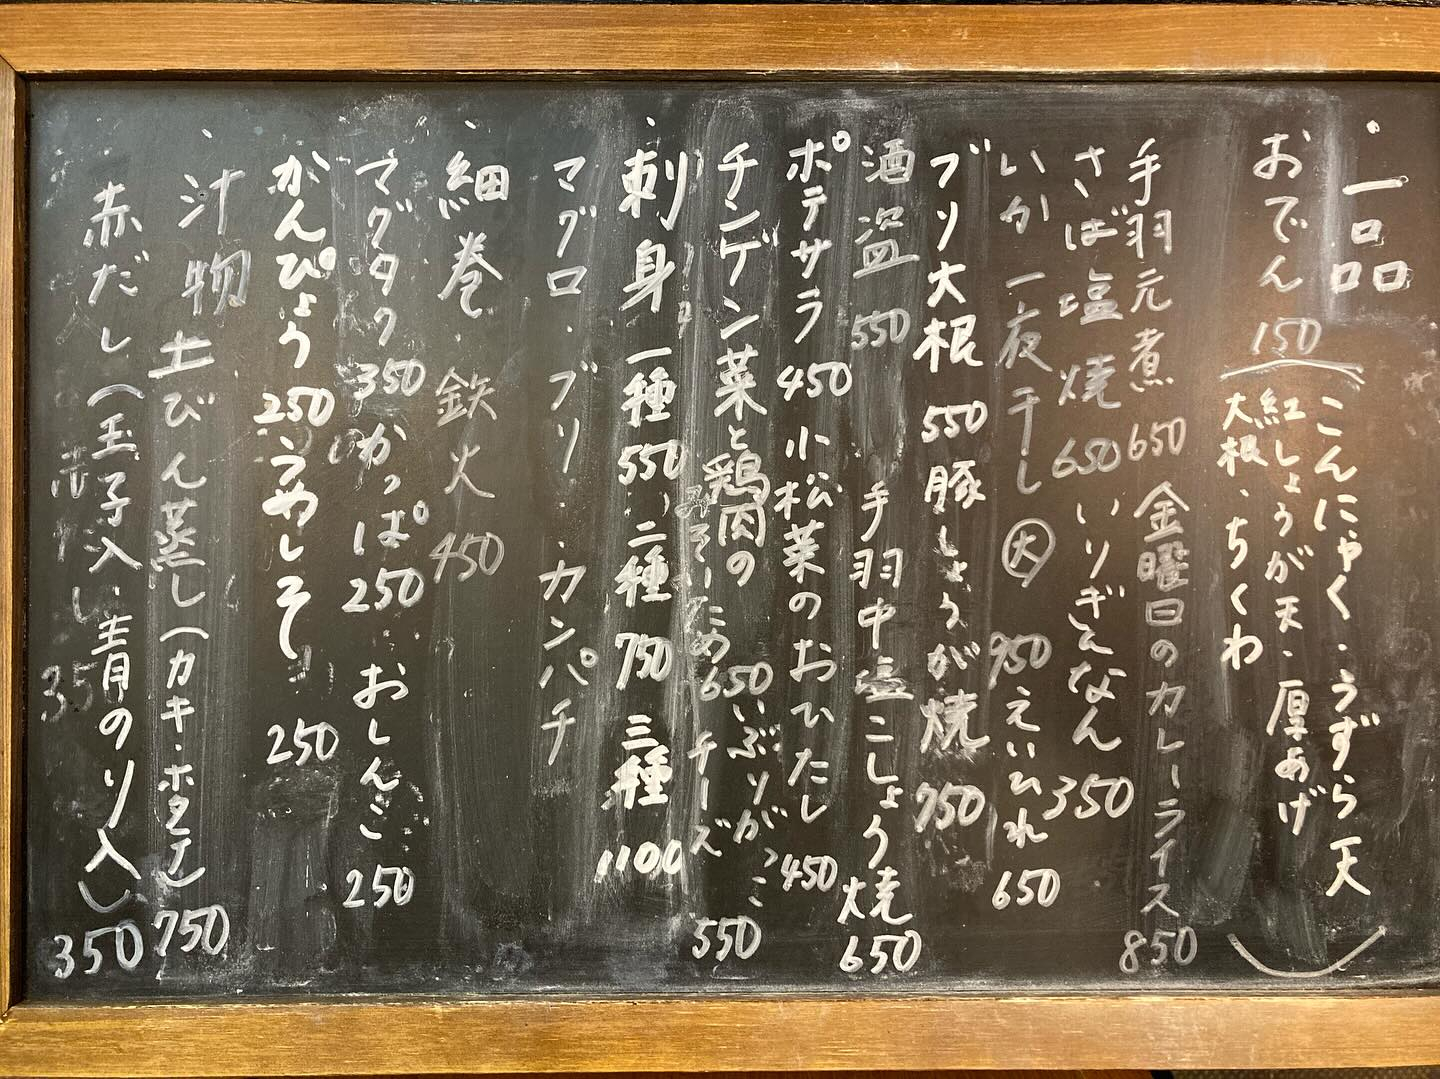 一品
おでん 150
(こんにゃく・うずら天
紅しょうが天・厚あげ
大根・ちくわ)
手羽元煮 650 金曜日のカレーライス 850
さば塩焼 650 いりぎんなん 350
いか一夜干し 大 950 えいひれ 650
ブリ大根 550 豚しょうが焼 750
酒盗 550 手羽中塩こしょう焼 650
ポテサラ 450 小松菜のおひたし 450
チンゲン菜と鶏肉のみそいため 650 いぶりがっこチーズ 550
刺身 一種 550 二種 750 三種 1100
マグロ・ブリ・カンパチ
細巻 鉄火 450
マグタク 350 かっぱ 250 おしんこ 250
かんぴょう 250 うめしそ 250
汁物 土びん蒸し(カキ・ホタテ) 750
赤だし(玉子入・青のり入) 350